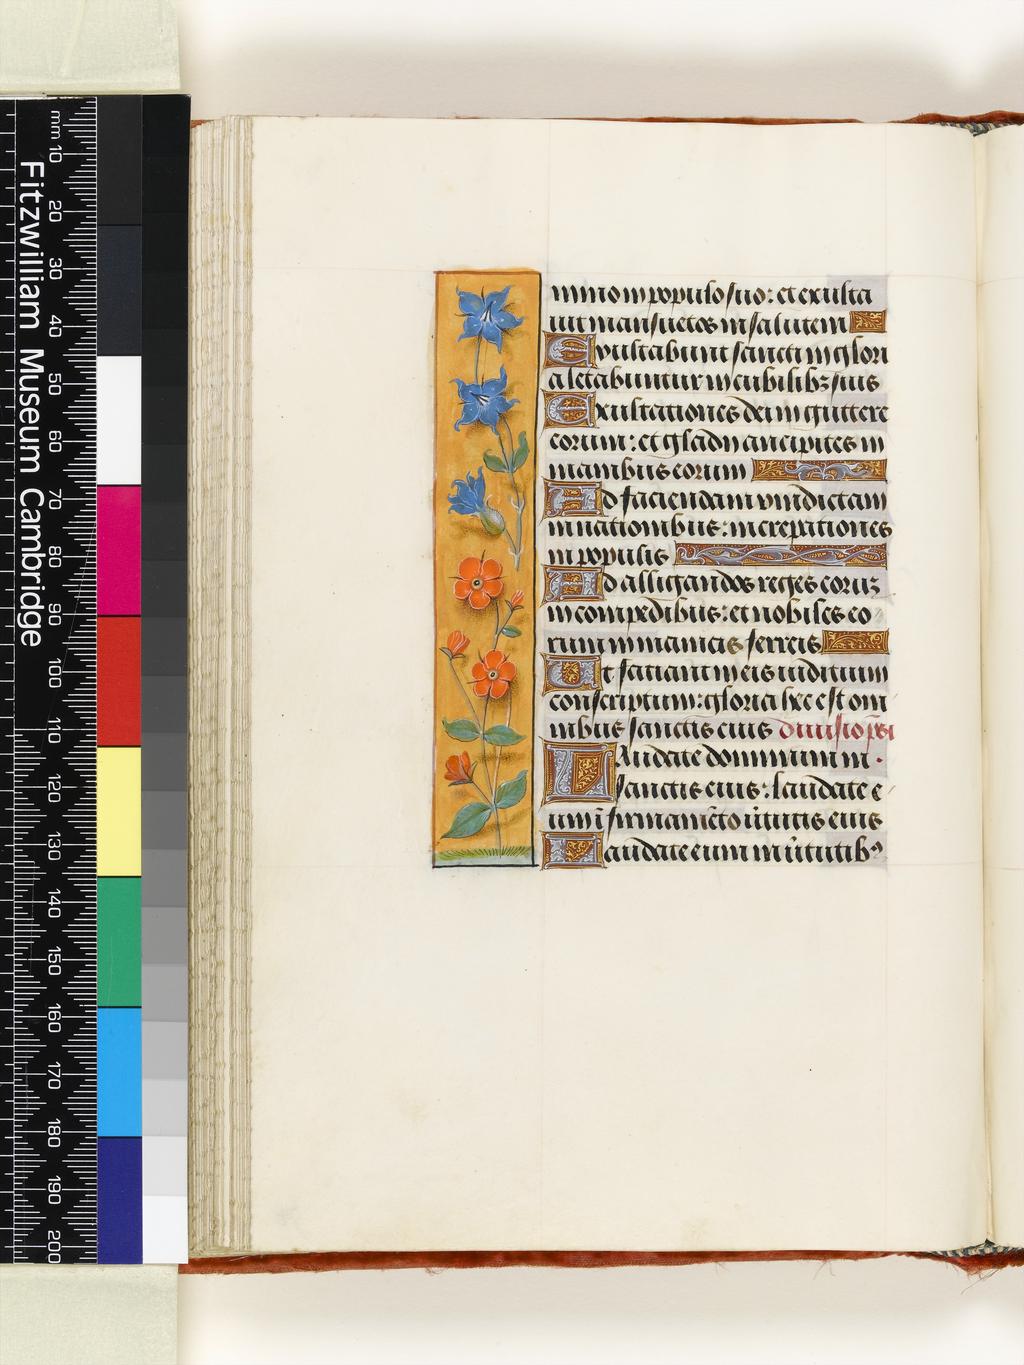 mino in populo suo: et exulta
uit mansuetos in salutem
Exultabunt sancti in glori
a letabuntur in cubilibꝫ suis
Exultationes dei in gutture
eorum: et gladii ancipites in
manibus eorum
Ad faciendam vindictam
in nationibus: increpationes
in populis
Ad alligandos reges eorum
in compedibus: et nobiles eo
rum in manicis ferreis
Ut faciant in eis iudicium
conscriptum: gloria hec est om
nibus sanctis eius
Laudate dominum in
sanctis eius: laudate e
um ī firmamēto ūtutis eius
Laudate eum in ūtutibꝰ
Fitzwilliam Museum Cambridge
mm 10 20 30 40 50 60 70 80 90 100 110 120 130 140 150 160 170 180 190 200